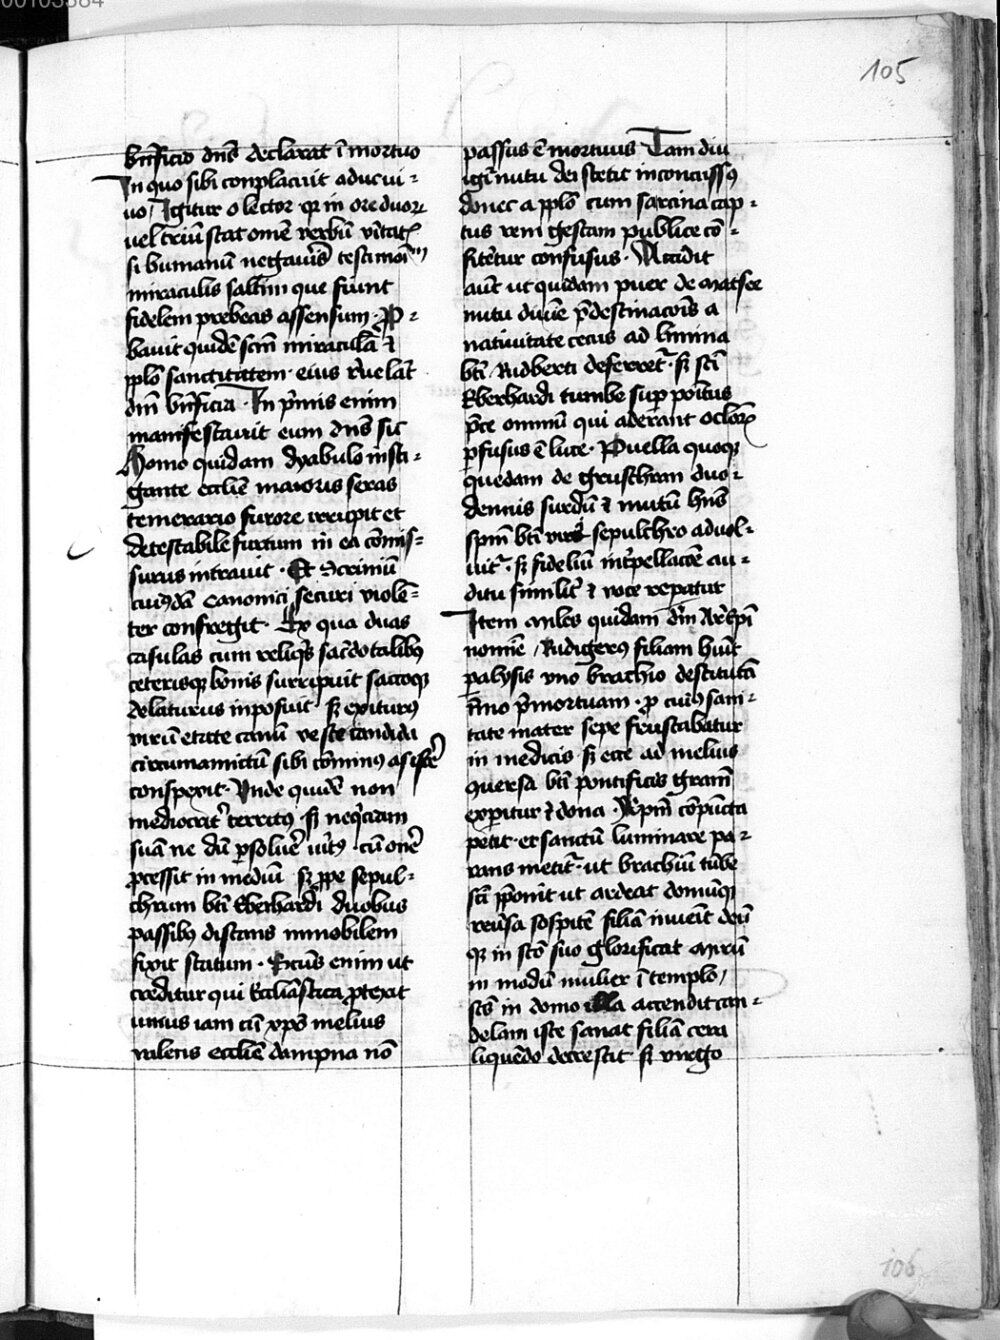 105
bn̄ficio dn̄s declarat ī mortuo
In quo sibi conplacuit aduc vi-
uo / Igitur o lector qꝛ in ore duoꝝ
uel triū stat om̄e verbū v̄itatꝭ
si humanū negau̾is testimōium
miraculis saltim que fiunt
fidelem prebeas assensum · P-
bauit quidē sc̄m miracula ⁊
pplō sanctitatem eius
dn̄i bn̄ficia · In p̄mis enim
manifestauit eum dn̄s sic
Homo quidam dyabulo insti-
gante eccl̄ie maioris seras
temerario furore irripit et
detestabile furtum in ea cōmis-
surus intrauit · Et scriniū
cuiꝰdā canonici securi violē-
ter confregit · Ex qua duas
casulas cum reliq̄s sac̄dotalibꝰ
ceterisqꝫ bonis surripuit saccoqꝫ
delaturus inposuit · sꝫ exiturꝰ
virū etate canū veste candida
circumamictū sibi cōminꝰ asiste̾
conspexit · Unde quidē non
mediocrit̾ territꝰ sꝫ neq̄ciam
suā ne dū ꝑsolue̾ cū on̾e
ꝓcessit in mediū · sꝫ ꝓpe sepul-
chrum bt̄i Eberhardi duobus
passibꝰ distans inmobilem
fixit statum · enim ut
creditur qui Eccl̄iastica ꝓtexit
unius iam cū xp̄o melius
valens eccl̄ie dampna nō
passus ē mortuus Tam diu
igr̄ nutu dei stetit inconcussꝰ
donec a pplō cum sarcina cap-
tus rem gestam publice cō-
fite̾tur confusus · Accidit
aūt ut quidam puer de matsee
nutu diuīe p̄destinacōis a
natiuitate cecus ad limina
bt̄i Rudberti deferret̾ · sꝫ sc̄i
Eberhardi tumbe suppoītus
p̄ce omniū qui aderant ocloꝝ
ꝑfusus ē luce · Puella quoqꝫ
quedam de gruschran duo-
dennis surdū ⁊ mutū hn̄s
sp̄m bt̄i viri sepulchro aduol-
uit̾ · sꝫ fideliū int̾pellacōe au-
ditu simil̾ ⁊ voce reparatur
Item miles quidam dn̄i Ar̾ep̄i
nomīe / Rudigerꝰ filiam hūit
palysis vno brachio destitutā
p̄mortuam · ꝓ cuiꝰ sani-
tate mater sepe frustabatur
in medicis sꝫ ecce ad melius
ꝯuersa bt̄i pontificis grām̄
expitur ⁊ dona · cōpūcta
petit · et sanctū luminare pa-
rans metit̾ · ut brachiū tūbe
sc̄i pponit ut ardeat domūqꝫ
reu̾sa sospitē filiā inuenit deū
qꝛ in sc̄o suo glorificat mirū
in modū mulier ī templo /
sc̄s in domo illa accendit can-
delam iste sanat filiā cera
liquēdo decrescit sꝫ virgo
106